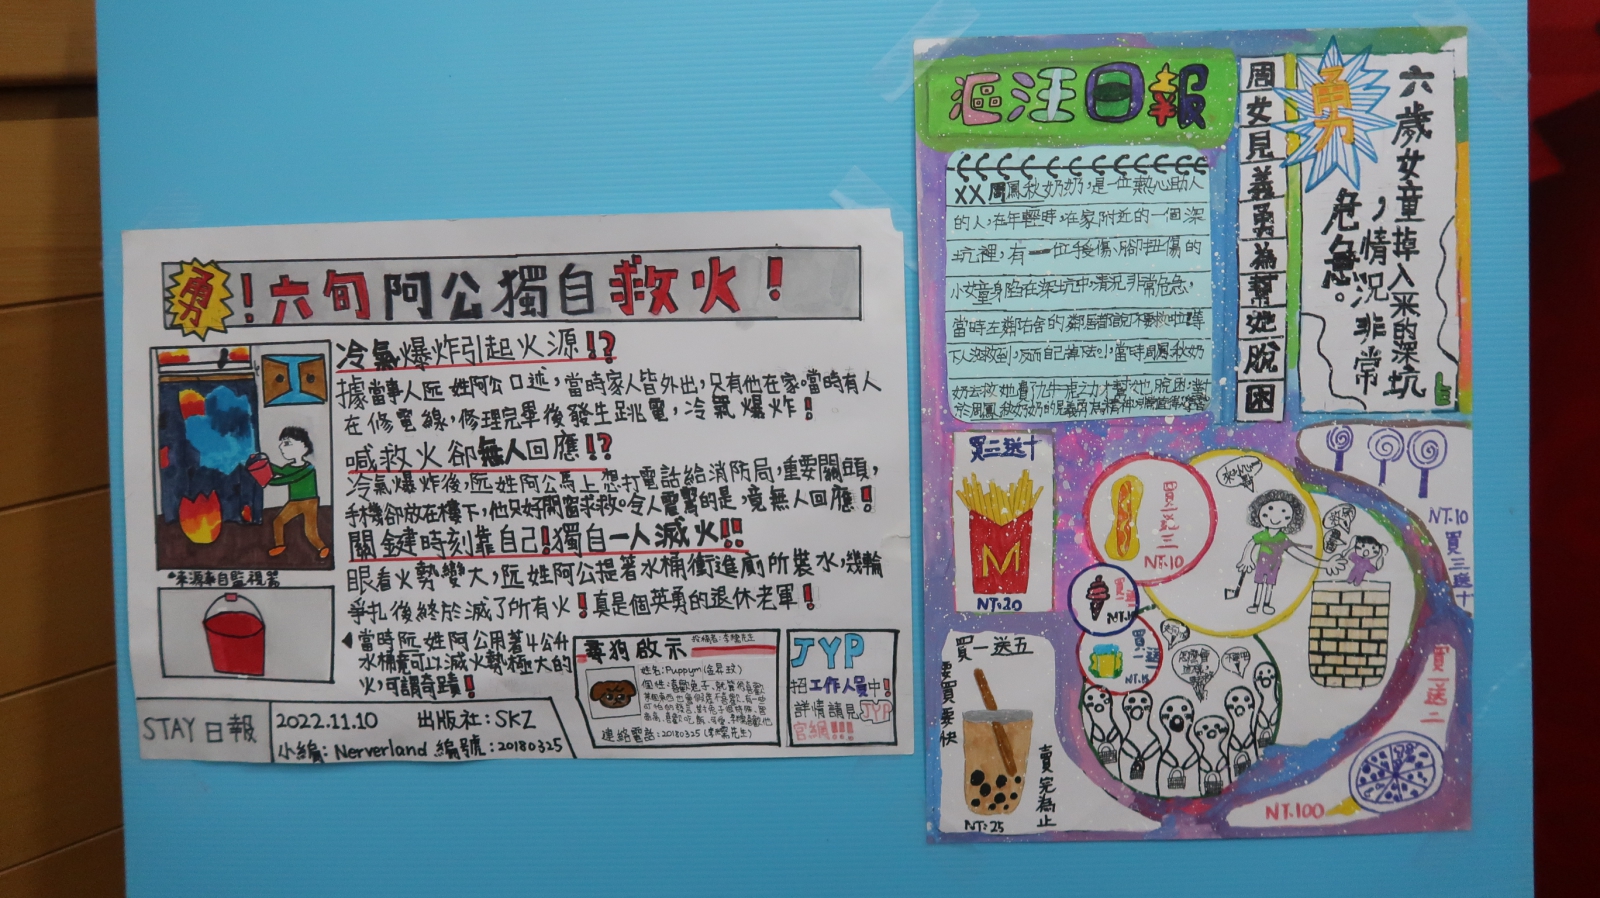 勇！六旬阿公獨自救火！
冷氣爆炸引起火源！？
據當事人阮姓阿公口述，當時家人皆外出，只有他在家。當時有人
在修電線，修理完畢後發生跳電，冷氣爆炸！
喊救火卻無人回應！？
冷氣爆炸後，阮姓阿公馬上想打電話給消防局，重要關頭，
手機卻放在樓下，他只好開窗求救。令人震驚的是，竟無人回應！
關鍵時刻靠自己！獨自一人滅火！！
眼看火勢變大，阮姓阿公提著水桶衝進廁所裝水，幾輪
爭扎後終於滅了所有火！真是個英勇的退休老軍！
*來源來自監視器
◀當時阮姓阿公用著4公升
水桶竟可以滅火勢極大的
火，可謂奇蹟！
尋狗啟示
姓名：Puppym(金昇玟)
連絡電話：20180325
JYP
招工作人員中！
詳情請見JYP
官網!!!
STAY日報
2022.11.10 出版社：SKZ
小編：Nerverland 編號：20180325
汪汪日報
XX周鳳秋奶奶，是一位熱心助人
的人，在年輕時，在家附近的一個深
坑裡，有一位手受傷、腳扭傷的
小女童身陷在深坑中，情況非常危急，
當時左鄰右舍的鄰居都說不要救啦！等
下人沒救到，反而自己掉下去。當時周鳳秋奶
奶去救她費了九牛二虎之力才幫她脫困，對
周女見義勇為幫她脫困
勇
六歲女童掉入米的深坑
，情況非常
危急。
買二送十
M
NT.20
NT.10
NT.10
買三送十
買一送五
要買要快
賣完為止
NT.25
救命
買一送二
NT.100